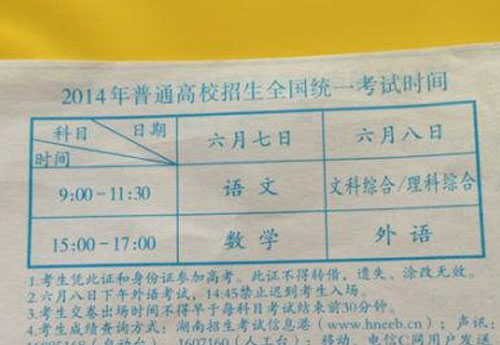 2014年普通高校招生全国统一考试时间
科目 日期 六月七日 六月八日
时间
9:00-11:30 语文 文科综合/理科综合
15:00-17:00 数学 外语
1.考生凭此证和身份证参加高考。此证不得转借,遗失、涂改无效。
2.六月八日下午外语考试,14:45禁止迟到考生入场。
3.考生交卷出场时间不得早于每科目考试结束前30分钟。
4.考生成绩查询方式:湖南招生考试信息港(www.hneeb.cn);声讯:
16885168(自动台)、1607160(人工台);移动、电信C网用户发送